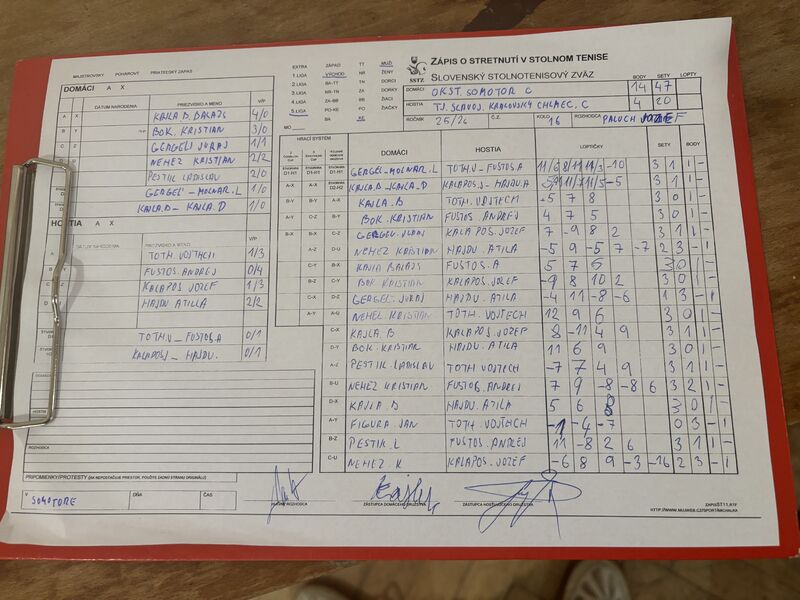 MAJSTROVSKÝ POHÁROVÉ PRIATEĽSKÝ ZÁPAS
EXTRA ZÁPAD TT MUŽI
1.LIGA VÝCHOD NR ŽENY
2.LIGA BA-TT TN DORCI
3.LIGA NR-TN ZA DORKY
4.LIGA ZA-BB BB ŽIACI
5.LIGA PO-KE PO ŽIAČKY
MO BA KE
SSTZ
ZÁPIS O STRETNUTÍ V STOLNOM TENISE
SLOVENSKÝ STOLNOTENISOVÝ ZVÄZ
BODY SETY LOPTY
DOMÁCI OKST. SOMOTOR C 14 47
HOSTIA TJ. SLAVOJ. KRÁĽOVSKÝ CHLMEC. C 4 20
ROČNÍK 25/26 Č.Z. KOLO 16 ROZHODCA PALUCH JOZEF
DOMÁCI A X
DÁTUM NARODENIA PRIEZVISKO A MENO V/P
KAJLA B. BALAZS 4/0
BOK. KRISTIAN 3/0
GERGELI JURAJ 1/1
NEHEZ KRISTIAN 2/2
PESTIK LADISLAV 2/0
GERGEĽ - MOLNAR. L 1/0
KAJLA.B - KAJLA. D 1/0
HOSTIA A X
DÁTUM NARODENIA PRIEZVISKO A MENO V/P
TOTH. VOJTECH 1/3
FUSTOS. ANDREJ 0/4
KALAPOS JOZEF 1/3
HAJDU ATILLA 2/2
TOTH.V - FUSTOS.A 0/1
KALAPOSJ - HAJDU. 0/1
HRACÍ SYSTÉM DOMÁCI HOSTIA LOPTIČKY SETY BODY
GERGEĽ-MOLNAR.L TOTH.V - FUSTOS.A 3 1 1 -
KAJLA.B - KAJLA.D KALAPOS.J - HAJDU.A 3 1 1 -
B-Y B-Y A-X KAJLA.B TOTH. VOJTECH -5 7 8 3 1 1 -
A-Y C-Z B-Y BOK. KRISTIAN FUSTOS ANDREJ 4 7 5 3 0 1 -
B-X B-X C-Z GERGEĽ. JURAJ KALAPOS. JOZEF 7 -9 8 2 3 1 1 -
A-Z D-U NEHEZ KRISTIAN HAJDU. ATILA -5 9 -5 7 -7 2 3 - 1
C-Y B-X KAJLA BALAZS FUSTOS.A 5 7 5 3 0 1 -
B-Z C-Y BOK KRISTIAN KALAPOS. JOZEF -9 8 10 2 3 1 1 -
C-X D-Z GERGEĽ. JURAJ HAJDU. ATILA -4 11 -8 -6 1 3 - 1
A-Y A-U NEHEZ KRISTIAN TOTH. VOJTECH 12 9 6 3 0 1 -
C-X KAJLA. B KALAPOS. JOZEF 8 -11 4 9 3 1 1 -
D-Y BOK. KRISTIAN HAJDU. ATILA 11 6 9 3 0 1 -
A-Z PESTIK. LADISLAV TOTH VOJTECH -7 7 4 9 3 1 1 -
B-U NEHEZ KRISTIAN FUSTOS. ANDREJ 7 9 -8 -8 6 3 2 1 -
D-X KAJLA. B HAJDU. ATILA 5 6 8 3 0 1 -
A-Y FIGURA. JAN TOTH. VOJTECH -1 -4 -7 0 3 - 1
B-Z PESTIK. L FUSTOS. ANDREJ 11 -8 2 6 3 1 1 -
C-U NEHEZ. K KALAPOS. JOZEF -6 8 9 -3 -16 2 3 - 1
DOMÁCI
HOSTIA
ROZHODCA
PRIPOMIENKY/PROTESTY (AK NEPOSTAČUJE PRIESTOR, POUŽITE ZADNÚ STRANU ORIGINÁLU)
V SOMOTORE DŇA ČAS
ROZHODCA
ZÁSTUPCA DOMÁCEHO DRUŽSTVA
ZÁSTUPCA HOSŤUJÚCEHO DRUŽSTVA
ZAPISST11.RTF
HTTP://WWW.MUJWEB.CZ/SPORT/MICHALKA